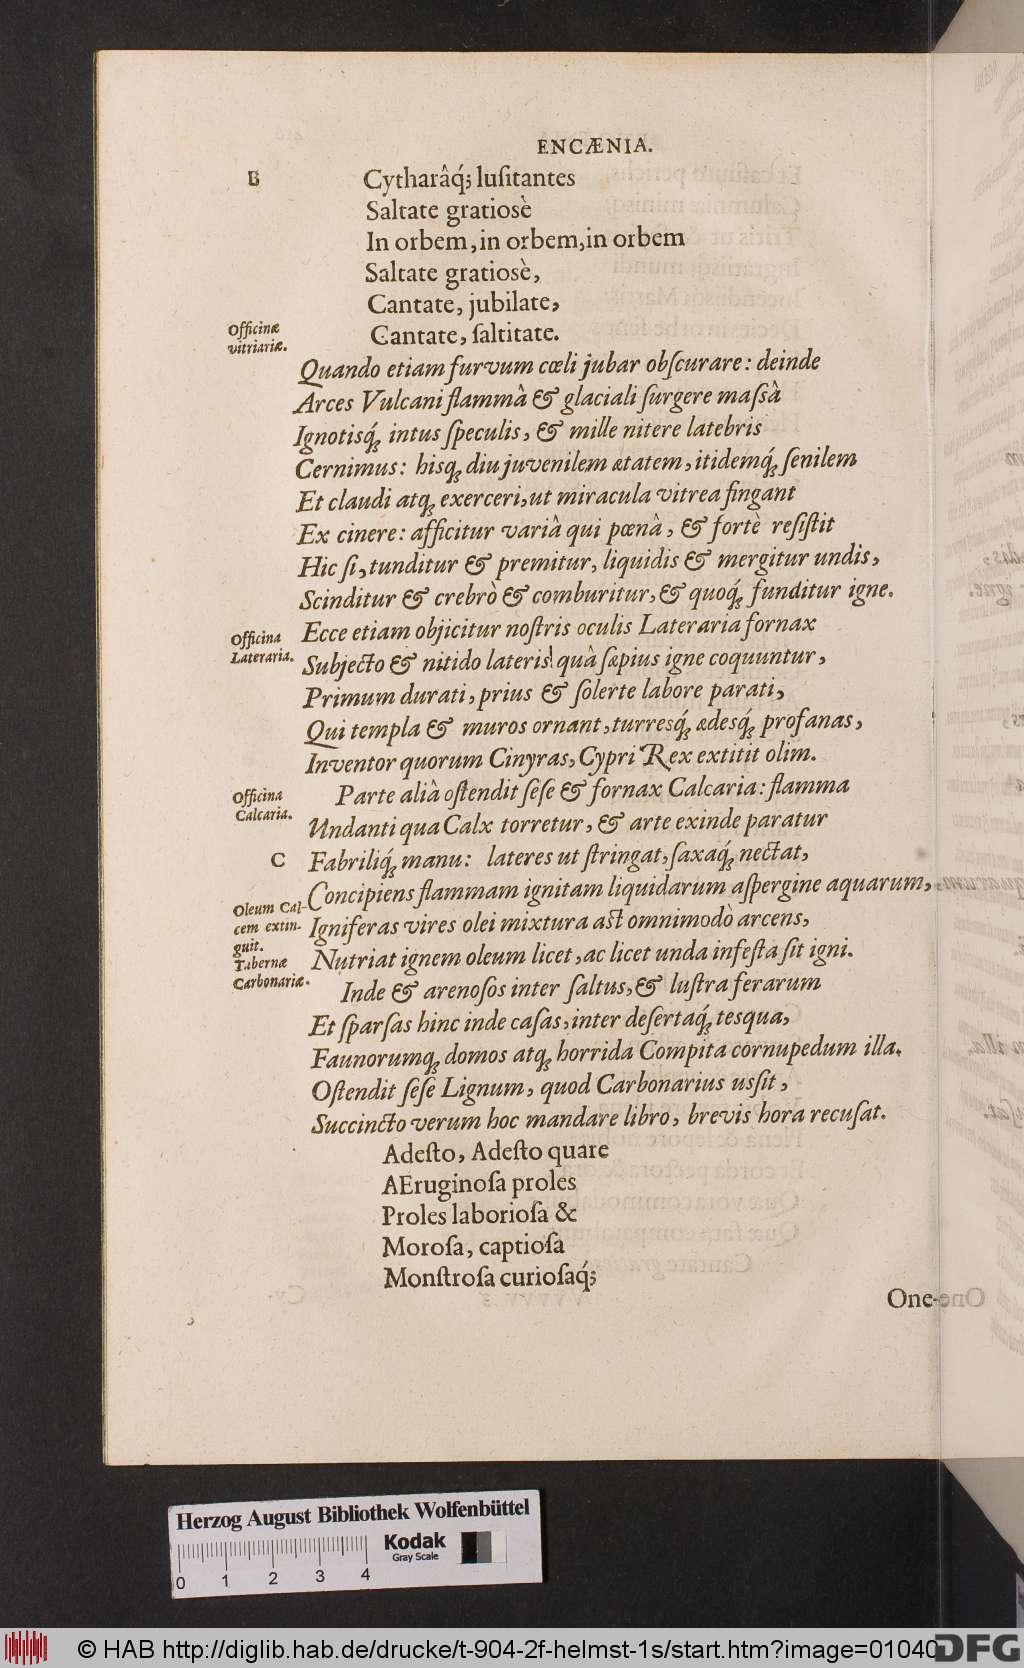 ENCÆNIA.
B
Cytharâq́; luſitantes
Saltate gratiosè
In orbem, in orbem, in orbem
Saltate gratiosè,
Cantate, jubilate,
Cantate, ſaltitate.
Officinæ
vitriariæ.
Quando etiam furvum cœli jubar obſcurare: deinde
Arces Vulcani flammâ & glaciali ſurgere maſsâ
Ignotisq́; intus ſpeculis, & mille nitere latebris
Cernimus: hisq; diu juvenilem ætatem, itidemq́; ſenilem
Et claudi atq; exerceri, ut miracula vitrea fingant
Ex cinere: afficitur variâ qui pœnâ, & fortè reſiſtit
Hic ſi, tunditur & premitur, liquidis & mergitur undis,
Scinditur & crebrò & comburitur, & quoq́; funditur igne.
Officina
Lateraria.
Ecce etiam objicitur noſtris oculis Lateraria fornax
Subjecto & nitido lateris quâ ſæpius igne coquuntur,
Primum durati, prius & ſolerte labore parati,
Qui templa & muros ornant, turresq́; ædesq́; profanas,
Inventor quorum Cinyras, Cypri Rex extitit olim.
Officina
Calcaria.
Parte aliâ oſtendit ſeſe & fornax Calcaria: flamma
Undanti qua Calx torretur, & arte exinde paratur
C
Fabriliq́; manu: lateres ut ſtringat, ſaxaq́; nectat,
Concipiens flammam ignitam liquidarum aſpergine aquarum,
Oleum Cal-
cem extin-
guit.
Igniferas vires olei mixtura aſt omnimodò arcens,
Nutriat ignem oleum licet, ac licet unda infeſta ſit igni.
Tabernæ
Carbonariæ.
Inde & arenoſos inter ſaltus, & luſtra ferarum
Et ſparſas hinc inde caſas, inter deſertaq́; tesqua,
Faunorumq; domos atq; horrida Compita cornupedum illa.
Oſtendit ſeſe Lignum, quod Carbonarius uſsit,
Succincto verum hoc mandare libro, brevis hora recuſat.
Adeſto, Adeſto quare
AEruginoſa proles
Proles laborioſa &
Moroſa, captioſa
Monſtroſa curioſaq́;
One-
Herzog August Bibliothek Wolfenbüttel
Kodak
Gray Scale
0 1 2 3 4
© HAB http://diglib.hab.de/drucke/t-904-2f-helmst-1s/start.htm?image=01040
DFG